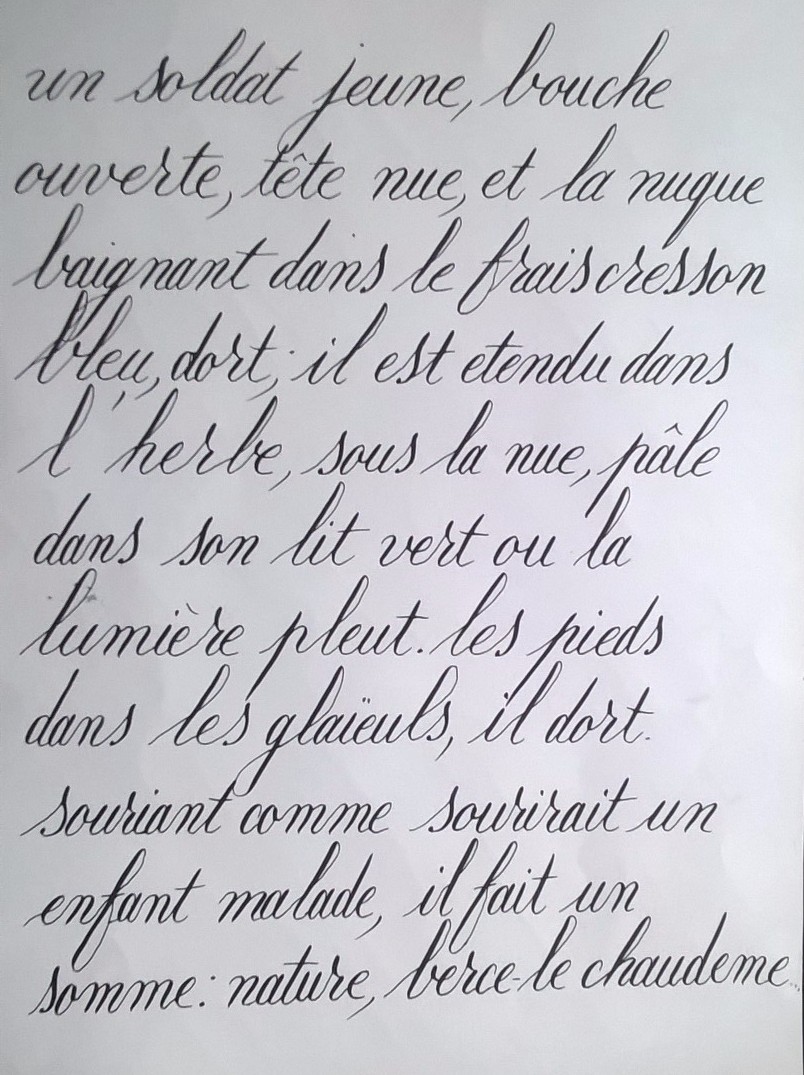 un soldat jeune, bouche
ouverte, tête nue, et la nuque
baignant dans le frais cresson
bleu, dort; il est etendu dans
l'herbe, sous la nue, pâle
dans son lit vert ou la
lumière pleut. les pieds
dans les glaïeuls, il dort.
souriant comme sourirait un
enfant malade, il fait un
somme: nature, berce-le chaudeme...